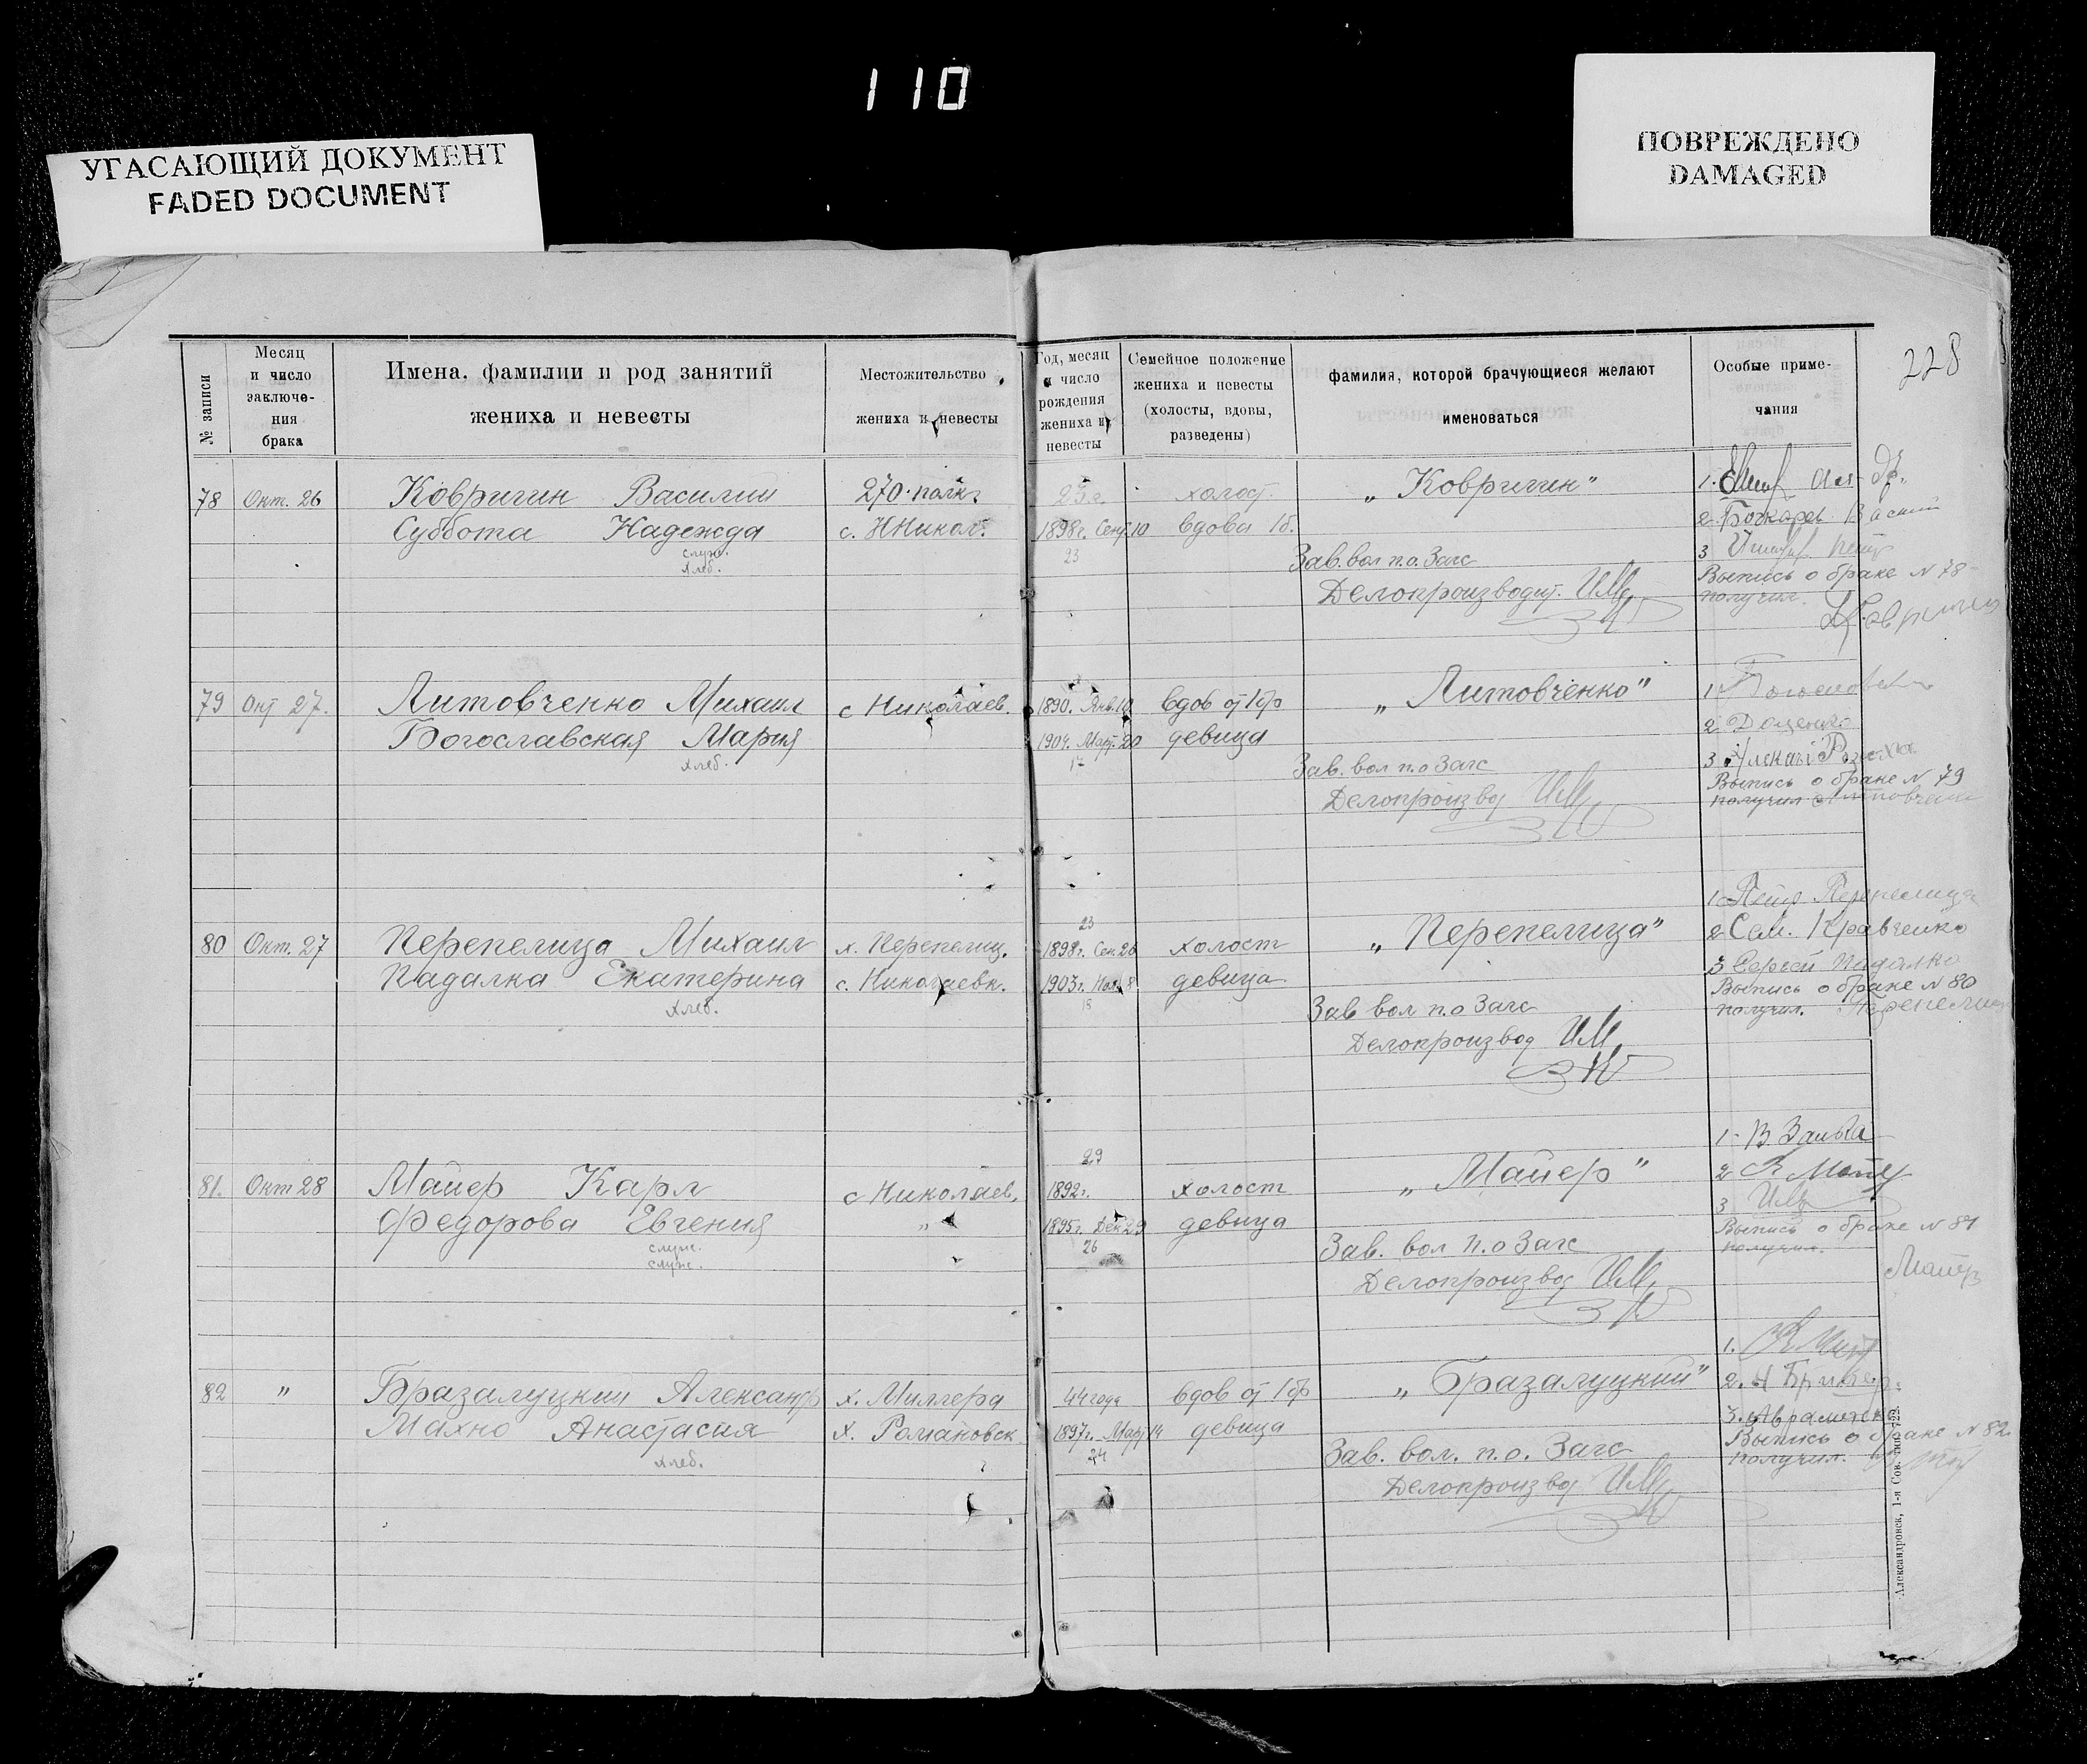 110
УГАСАЮЩИЙ ДОКУМЕНТ
FADED DOCUMENT
ПОВРЕЖДЕНО
DAMAGED
228
№ записи
Месяц и число заключе-ния брака
Имена, фамилии и род занятий
жениха и невесты
Местожительство
жениха и невесты
Год, месяц и число рождения жениха и невесты
Семейное положение жениха и невесты (холосты, вдовы, разведены)
фамилия, которой брачующиеся желают
именоваться
Особые приме-
чания
78 Окт. 26 Ковригин Василий 270 полк. 25 г. холост. „Ковригин"
Суббота Надежда с. ННикол. 1898г. Сент. 10 вдова 1 б.
служ.
хлеб.
23
Зав. вол п.о. Загс
Делопроизводит.
1.
2. Бочкарев Васили
3
Выпись о браке № 78
получил. Ковригин
79 Окт 27. Литовченко Михаил с Николаев. 1890. Янв. 10 вдов от 1 бр „Литовченко"
Богославская Мария 1904. Март. 20 девица
хлеб.
17
Зав. вол п.о Загс
Делопроизвод
1
2. Доценко
3
Выпись о браке № 79
получил Литовченко
80 Окт. 27 Перепелица Михаил х. Перепелиц. 1898г. Сен. 26 холост „Перепелица"
23
Падалка Екатерина с. Николаевк. 1903г. Ноя. 8 девица
хлеб.
18
Зав вол п.о Загс
Делопроизвод
1 Петр Перепелица
2 Сем. Кравченко
3 Сергей Падалко
Выпись о браке № 80
получил. Перепелица
81. Окт 28 Майер Карл с Николаев. 1892г. холост „Майер"
29
Федорова Евгения „ 1895г. Дек 29 девица
служ.
служ.
26
Зав. вол п.о Загс
Делопроизвод
1-
2 К Майер
3
Выпись о браке № 81
получил.
Майер
82 " Бразалуцкий Александр х. Миллера 44 года вдов от 1 бр „Бразалуцкий"
Махно Анастасия х. Романовск 1897г. Март 14 девица
хлеб.
24
Зав. вол. п.о. Загс
Делопроизвод
1.
2.
3. Авраменко
Выпись о браке № 82.
получил.
Александровск, 1-я Сов. тип. 722.